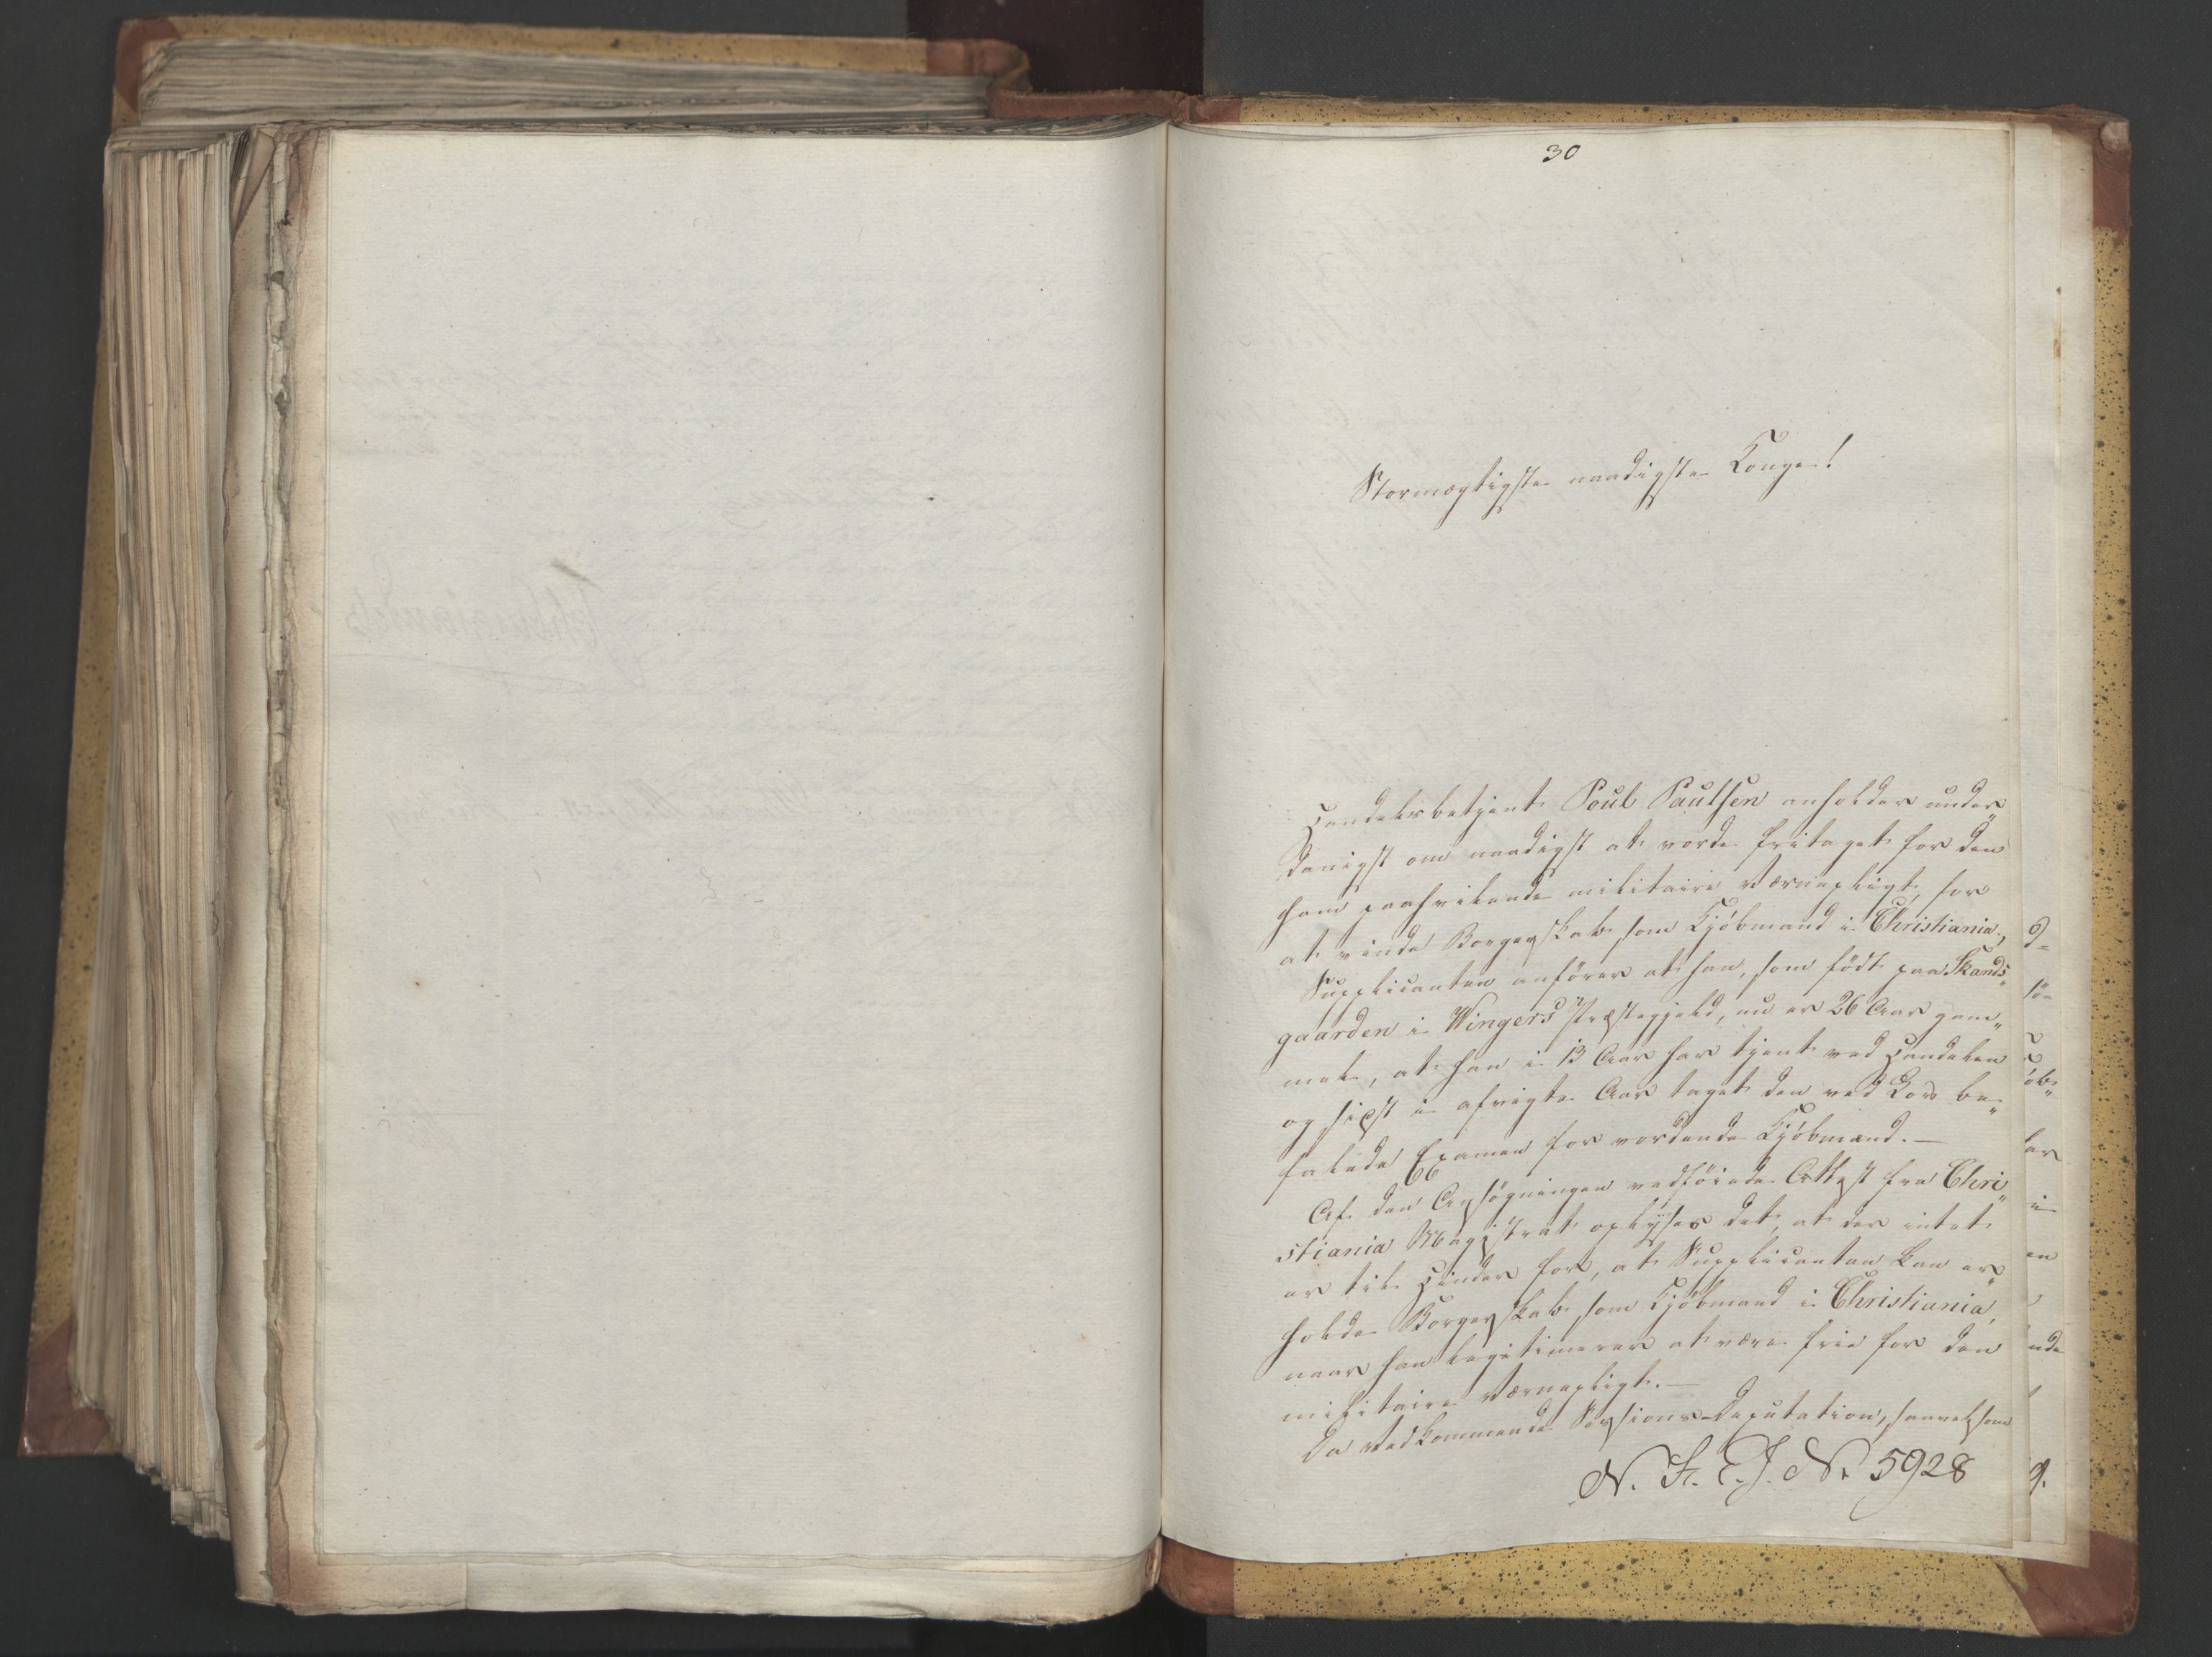 30
Stormægtigste naadigste Konge!
Handelsbetjent Poul Paulsen anholder under„
danigst om naadigst at vorde fritaget for den
ham paahvilende militaire Værnepligt, for
at vinde Borgerskab som Kjøbmand i Christiania.,
Supplicanten anförer at han, som födt paa Skands„
gaarden i Wingers Præstegjeld, nu er 26 Aar gam„
mel, at han i 13 Aar har tjent ved Handelen
og sidst i afvigte Aar taget den ved Lov be„
falede Examen for vordende Kjöbmænd. —
Af den Ansögningen vedföiede Attest fra Chri„
stiania Magistrat oplyses det, at der intet
er til Hinder for, at Supplicanten kan er„
holde Borgerskab som Kjöbmand i Christiania,
naar han legitimerer at være frie for den
militaire Værnepligt. —
Da Vedkommende Sessions-Deputation, saavelsom
N. 5928